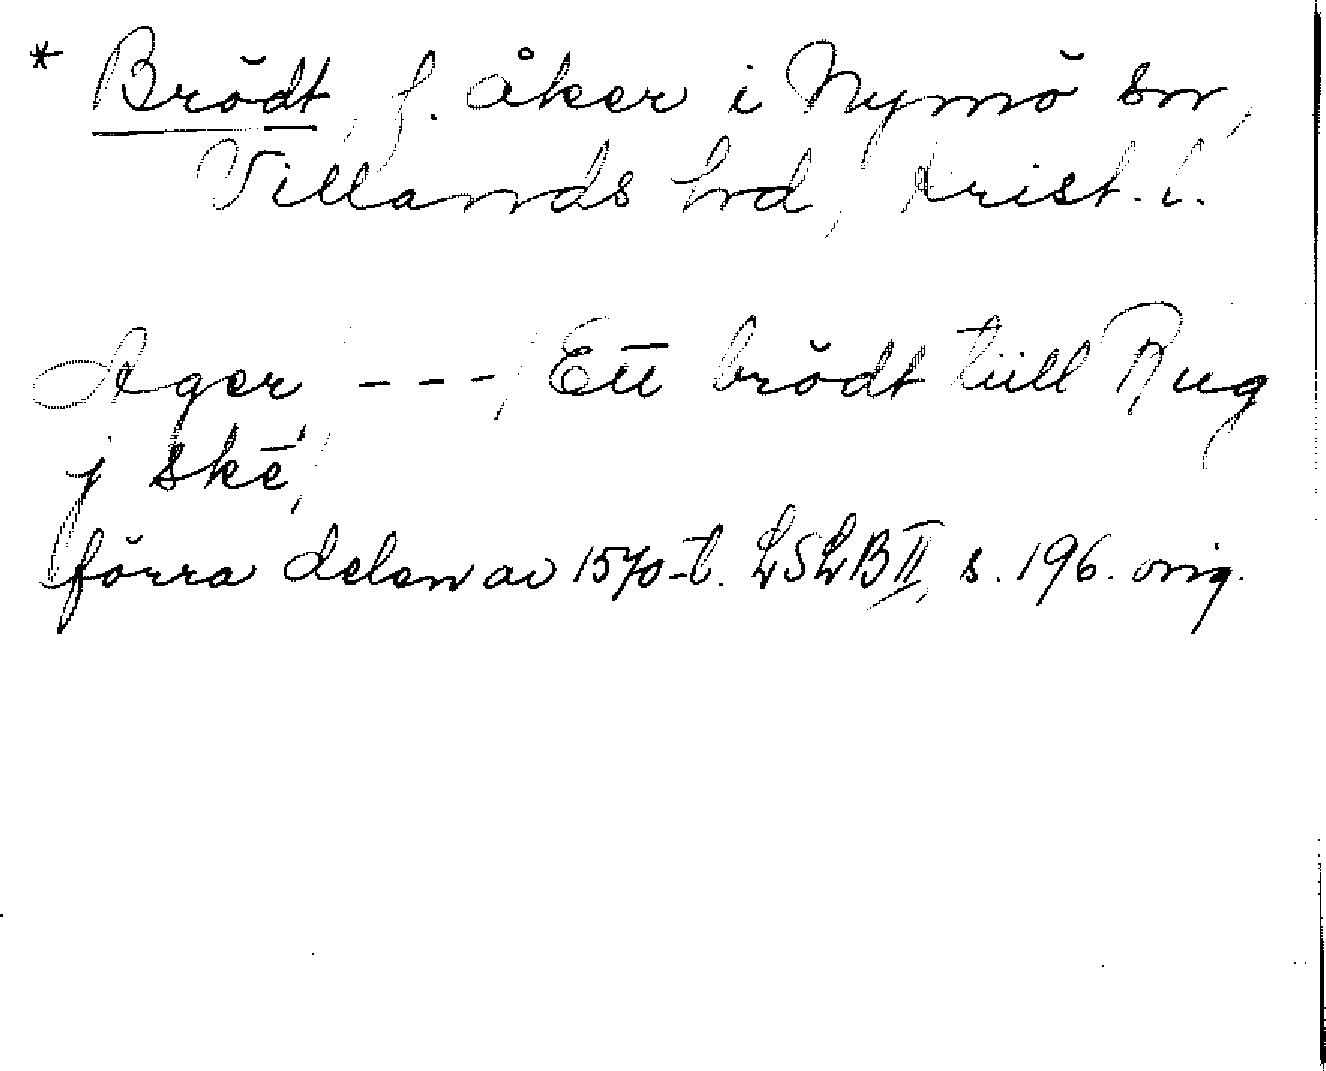 * Brödt, f. åker i Nymö sn,
Villands hrd, Krist. l.
Ager, - - -, Ett brödt tiill Rug
j skē,
förra delen av 1570-t. LSLB II, s. 196. orig.